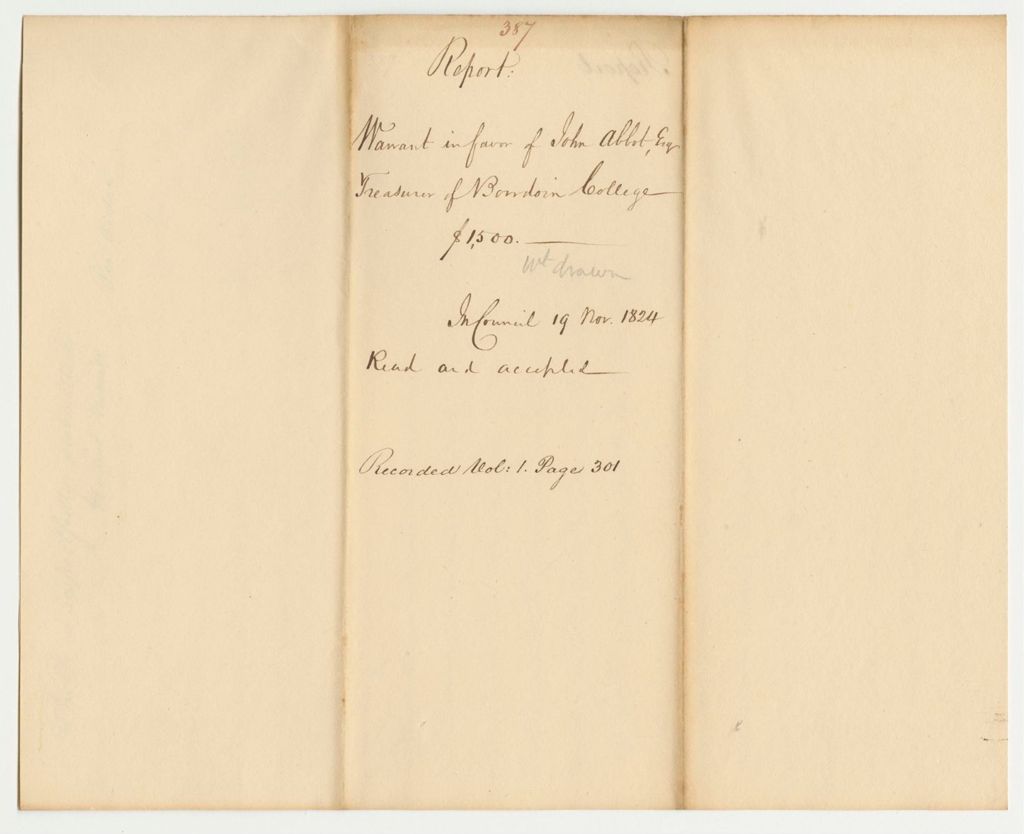 387
Report:
Warrant in favor of John Abbot, Esq
Treasurer of Bowdoin College
$1,500.
Wt drawn
In Council 19 Nov. 1824
Read and accepted
Recorded Vol: 1. Page 301